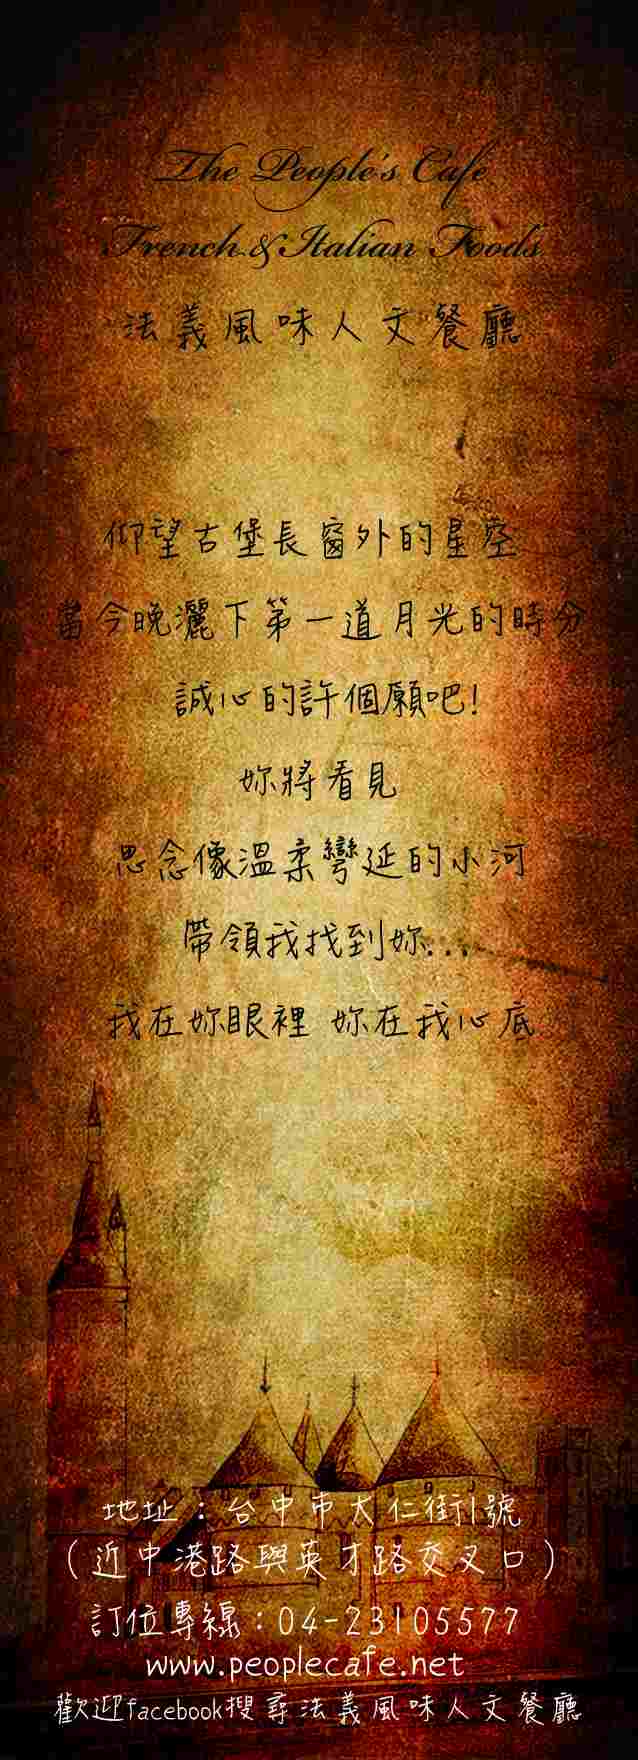 The People's Café
French & Italian Foods
法義風味人文餐廳
仰望古堡長窗外的星空
當今晚灑下第一道月光的時分
誠心的許個願吧!
妳將看見
思念像溫柔彎延的小河
帶領我找到妳...
我在妳眼裡 妳在我心底
地址：台中市大仁街1號
（近中港路與英才路交叉口）
訂位專線：04-23105577
www.peoplecafe.net
歡迎facebook搜尋法義風味人文餐廳